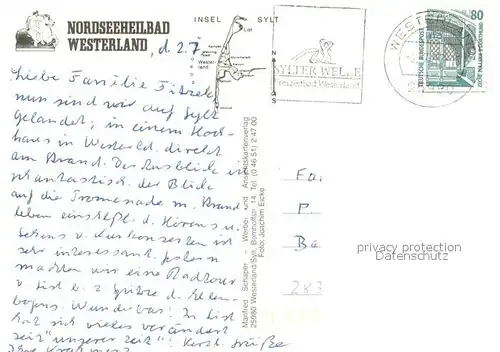 NORDSEEHEILBAD
WESTERLAND, d. 2.7
Liebe Familie
nun sind wir auf Sylt
gelandet; in einem Hoch-
haus in Westerld. direkt
am Strand. Der Ausblick ist
phantastisch, der Blick
auf die Promenade m. Strand
leben einschl. d. Hörens u.
Sehens v. Kurkonzerten ist
sehr interessant. Gestern
machten wir eine Radtour
v. List b. z. Spitze d. Ellen-
bogens. Wunderbar! In List
hat sich vieles verändert
seit "unserer Zeit"! Herzl. Grüße
Ihre
INSEL SYLT
List
Wester-
land
N
S
SYLTER WELLE
Westerland
WESTERLAND
80
DEUTSCHE BUNDESPOST
ZECHE ZOLLERN II DORTMUND
Manfred Schaper - Werbe- und Ansichtskartenverlag
25980 Westerland/Sylt, Bomhoffstr. 14, Tel. (0 46 51) 2 47 00
Foto: Joachim Eicke
Fa.
P
Ba
283
privacy protection
Datenschutz